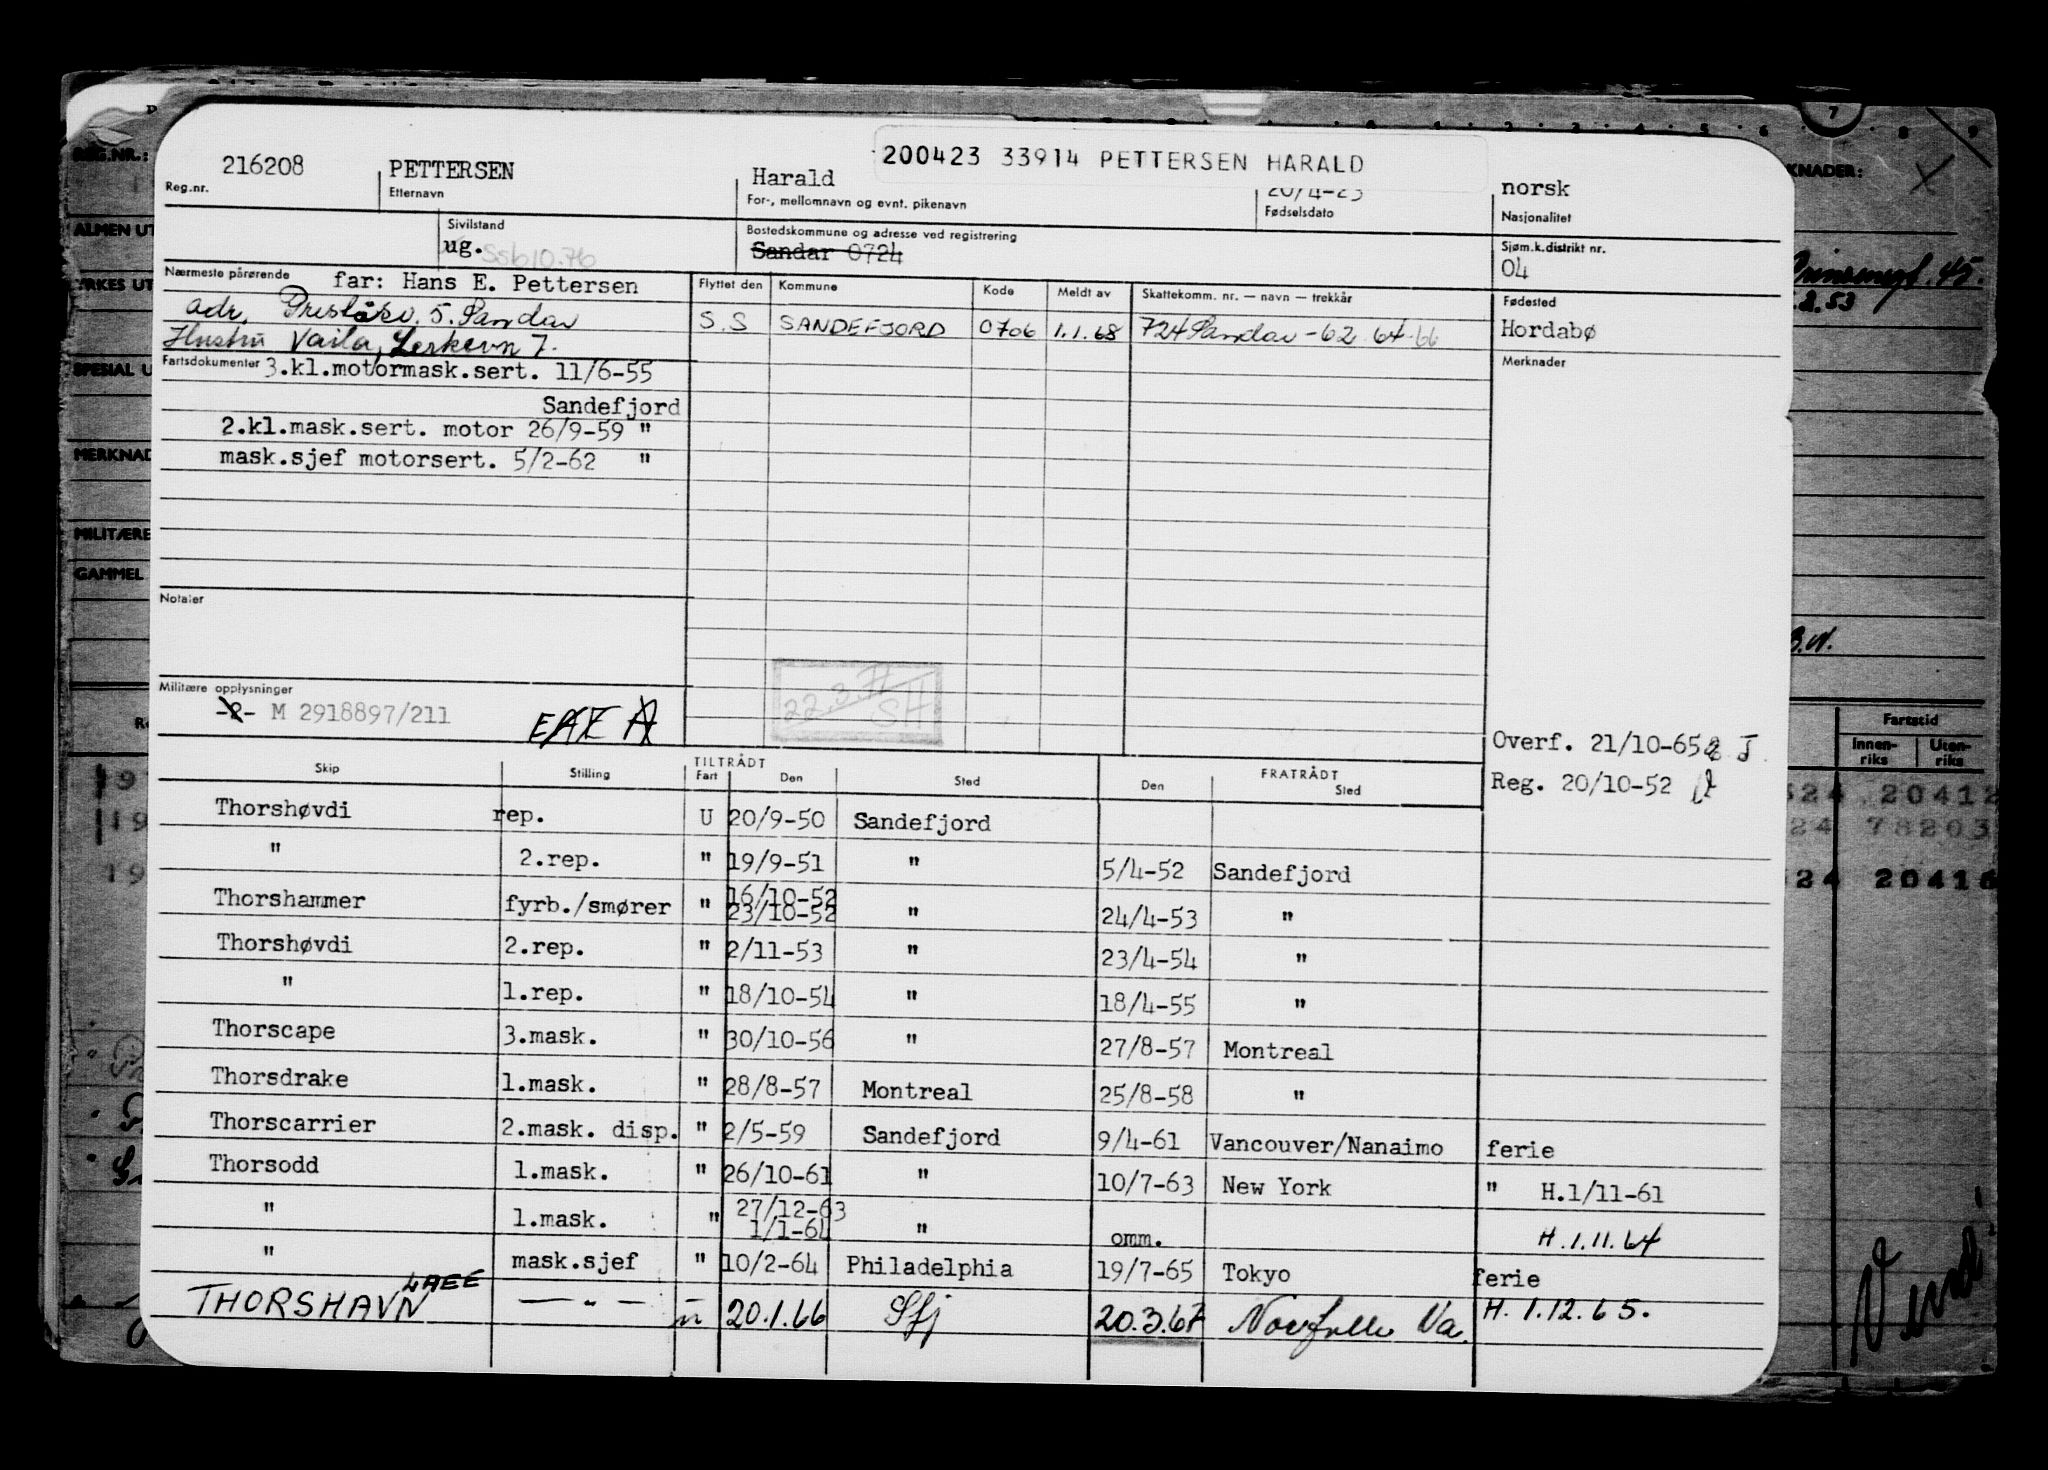 216208 PETTERSEN Harald 200423 33914 PETTERSEN HARALD norsk
Reg.nr. Etternavn For-, mellomnavn og evnt. pikenavn 20/4-23 Fødselsdato Nasjonalitet
Sivilstand Bostedskommune og adresse ved registrering Sjøm.k.distrikt nr.
ug. Sandar 0724 04
Nærmeste pårørende far: Hans E. Pettersen Flyttet den Kommune Kode Meldt av Skattekomm. nr. — navn — trekkår Fødested
adr. 5. Sandar S.S SANDEFJORD 0706 1.1.68 724 Sandar - 62 64 66 Hordabø
Hustru Vaila, Lerkevn 7. Merknader
Fartsdokumenter 3.kl.motormask.sert. 11/6-55
Sandefjord
2.kl.mask.sert. motor 26/9-59 "
mask.sjef motorsert. 5/2-62 "
Notater
22.3.71 SH
Militære opplysninger
-2- M 2918897/211
Overf. 21/10-65
Reg. 20/10-52
Skip Stilling TILTRÅDT Fart Den Sted FRATRÅDT Den Sted
Thorshøvdi rep. U 20/9-50 Sandefjord
" 2.rep. " 19/9-51 " 5/4-52 Sandefjord
Thorshammer fyrb./smører " 16/10-52 23/10-52 " 24/4-53 "
Thorshøvdi 2.rep. " 2/11-53 " 23/4-54 "
" 1.rep. " 18/10-54 " 18/4-55 "
Thorscape 3.mask. " 30/10-56 " 27/8-57 Montreal
Thorsdrake 1.mask. " 28/8-57 Montreal 25/8-58 "
Thorscarrier 2.mask. disp. " 2/5-59 Sandefjord 9/4-61 Vancouver/Nanaimo ferie
Thorsodd 1.mask. " 26/10-61 " 10/7-63 New York " H.1/11-61
" 1.mask. " 27/12-63 1/1-64 " omm. H.1.11.64
" mask.sjef " 10/2-64 Philadelphia 19/7-65 Tokyo ferie
THORSHAVN LAEE — " — u 20.1.66 Sfj 20.3.67 Norfolk Va. H. 1.12.65.
REG.NR.:
ALMEN UT
YRKES UT
SPESIAL U
MERKNAD
MILITÆRE
GAMMEL
KNADER:
45.
2.53
Fartstid
Innen-riks Uten-riks
20412
24 78203
24 20416